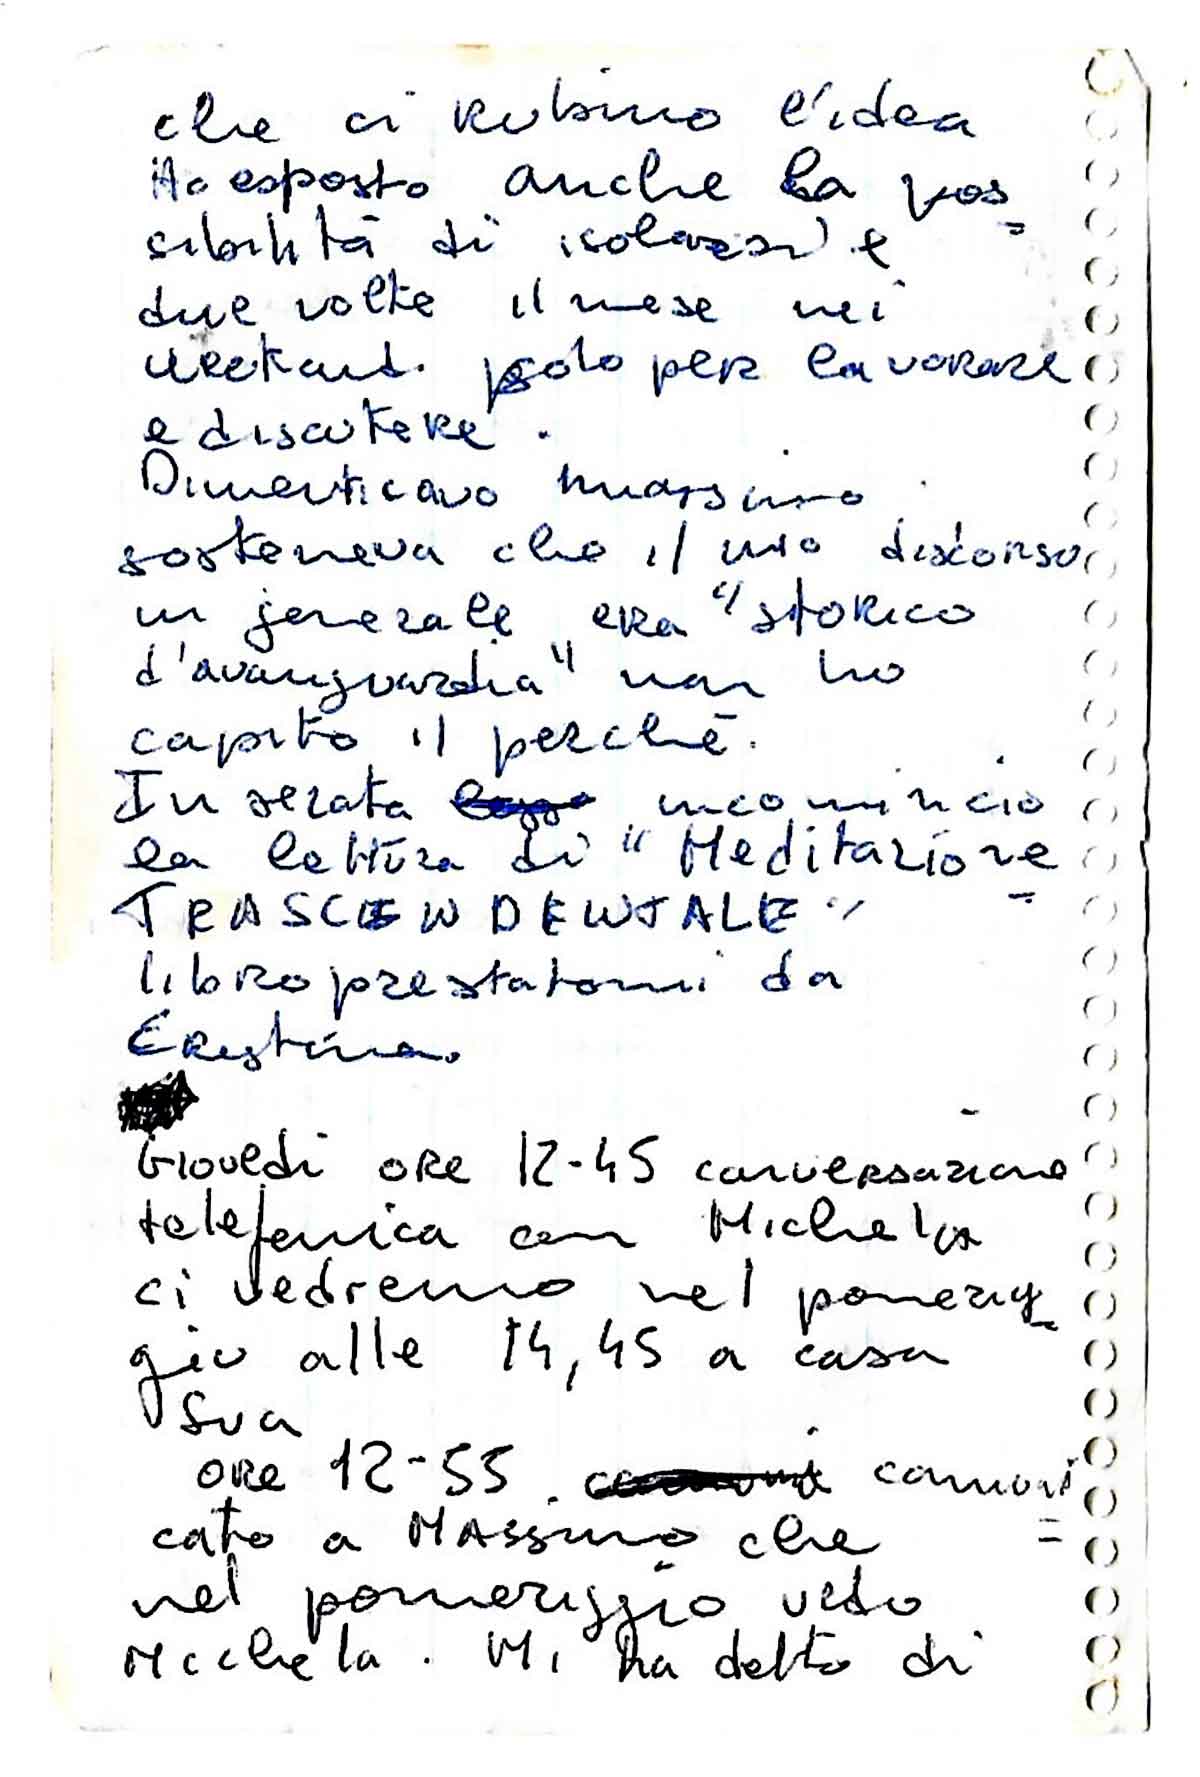 che ci rubino l'idea
Ho esposto anche la pos
sibilità di isolarsi e
due volte il mese nei
weekend. solo per lavorare
e discutere.
Dimenticavo Massimo
sosteneva che il mio discorso
in generale era "storico
d'avanguardia" non ho
capito il perchè.
In serata incomincio
la lettura di "Meditazione
TRASCENDENTALE"
libro prestatomi da
Cristina.
Giovedi ore 12-45 conversazione
telefonica con Michela
ci vedremo nel pomerig
gio alle 14,45 a casa
Sua
ore 12-55 comuni
cato a Massimo che
nel pomeriggio vedo
Michela. Mi ha detto di